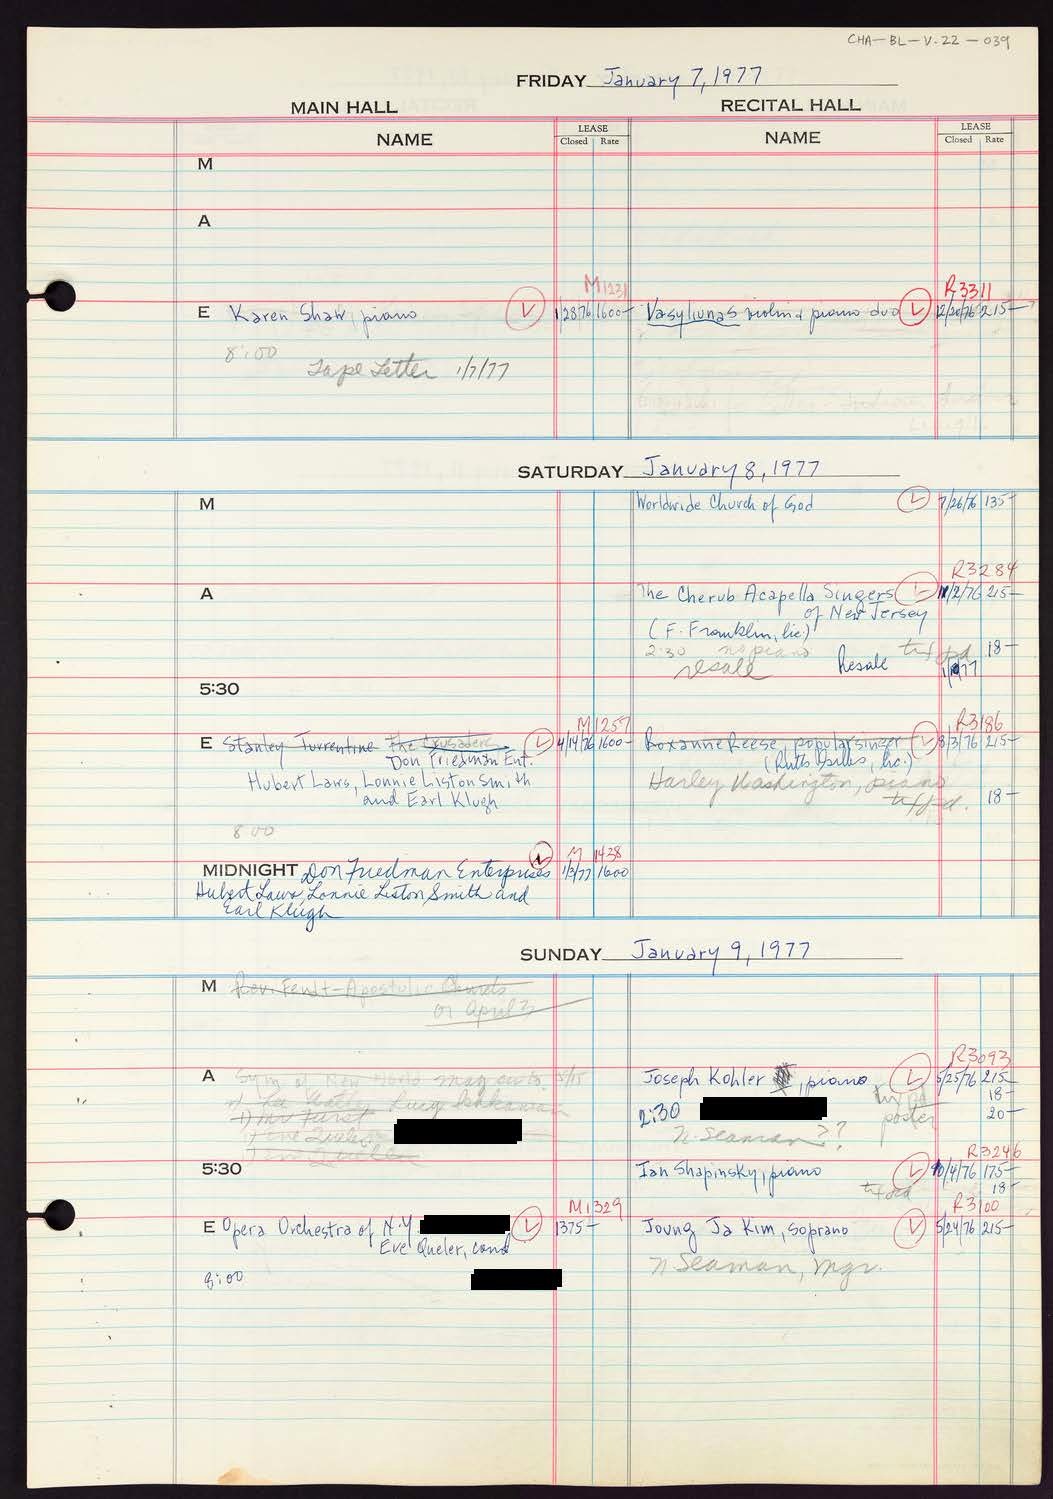 CHA-BL-V.22-039
FRIDAY January 7, 1977
MAIN HALL RECITAL HALL
NAME LEASE Closed Rate NAME LEASE Closed Rate
M
A
M1231 R3311
E Karen Shaw, piano 1/28/76 1600- Vasyliunas violin & piano duo 12/20/76 215-
8:00
Tape Letter 1/7/77
SATURDAY January 8, 1977
M Worldwide Church of God 7/26/76 135-
R3284
A The Cherub Acapella Singers 11/2/76 215-
of New Jersey
(F. Franklin, lic.)
2:30 no piano 18-
resale Resale
5:30
M1257 R3186
E Stanley Turrentine The Crusaders 4/14/76 1600- Roxanne Reese, popular singer 8/3/76 215-
Don Friedman Ent.
Hubert Laws, Lonnie Liston Smith
and Earl Klugh
Harley Washington, piano
18-
8:00
M 1438
MIDNIGHT Don Friedman Enterprises 1/3/77 1600
Hubert Laws, Lonnie Liston Smith and
Earl Klugh
SUNDAY January 9, 1977
M Rev. Fendt-Apostolic Church
or April 3
R3093
A Sym of New World may cvts. 5/15 Joseph Kohler, piano 5/25/76 215-
18-
2:30 poster 20-
N. Seaman??
R3246
5:30 Ian Shapinsky, piano 10/4/76 175-
18-
M1329 R3100
E Opera Orchestra of N.Y. 1375- Joung Ja Kim, soprano 5/24/76 215-
Eve Queler, cond
N Seaman, mgr.
8:00